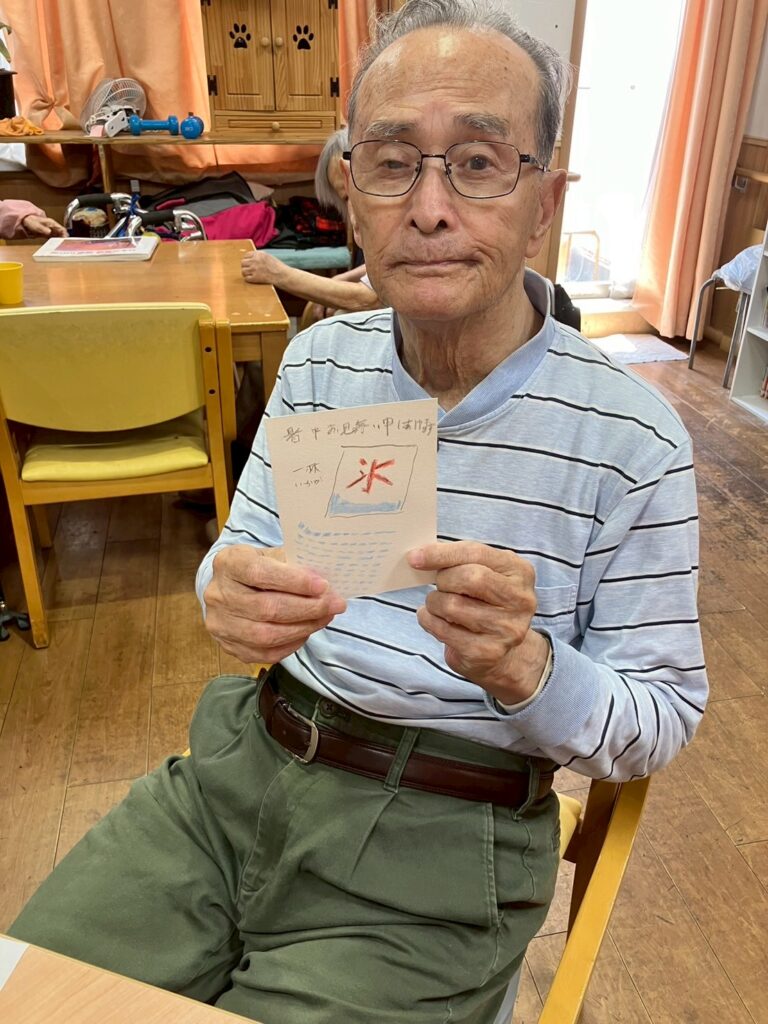 暑中お見舞い申し上げます
氷
一杯
いかが